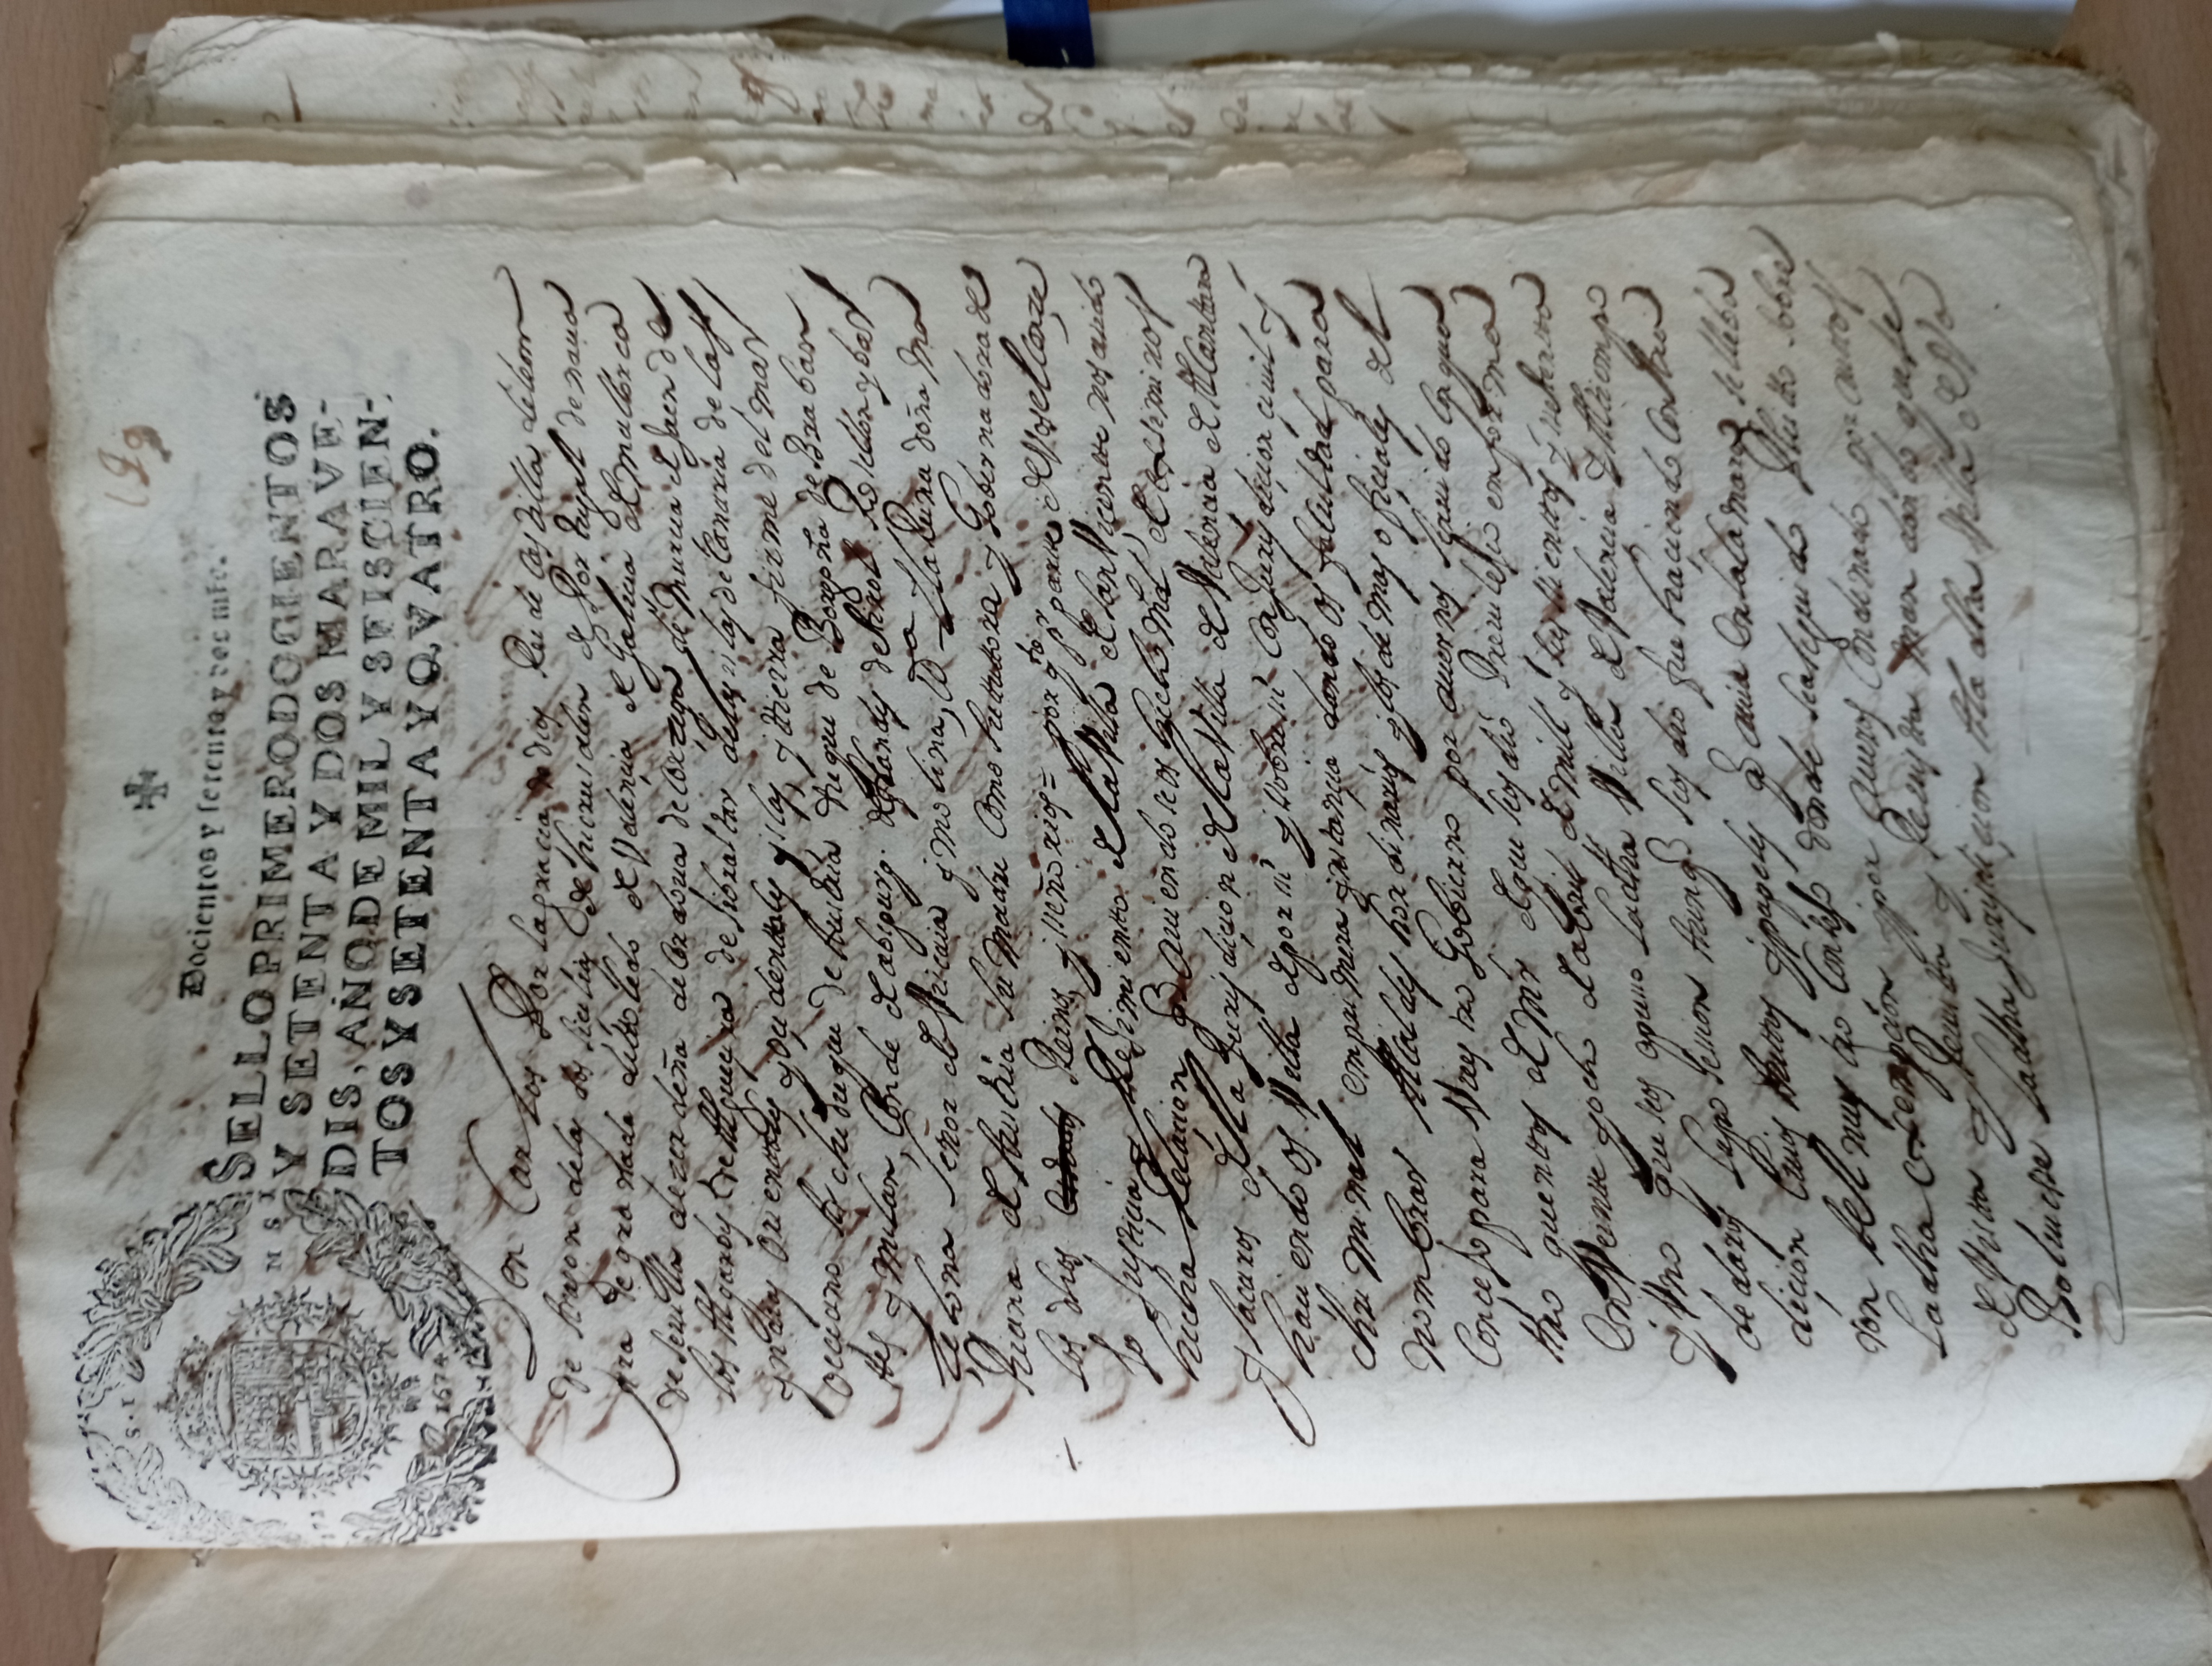 199
Docientos y setenta y dos mrs.
SELLO PRIMERO DOCIENTOS
Y SETENTA Y DOS MARAVE-
DIS, AÑO DE MIL Y SEISCIEN-
TOS Y SETENTA Y QVATRO.
1674
Don Carlos Por la gracia de dios Rei de Castilla de leon
de Aragon de las dos sicilias de hierusalen de Portugal de naua
rra de granada de ttoledo de Valençia de Galicia de mallorca
de seuilla de zerdeña de Cordoua de Corzega de Murcia de Jaen de
los Algarbes de Algueçira de Jibraltar de las islas de Canaria de las
yndias Orienttales y oçidenttales yslas, y ttierra firme del mar
occeano Archiduque de Austria duque de Borgoña de Braban
ttes y milan, Conde de abspurg. de flandes de tirol Rosellon y bar
zelona Señor de Vizcaia y molina, ID^a La Reina doña Ma
Riana de Austria su madre Como su ttuttora y Gobernadora de
los dhos Reinos, y señorios = por q^to pr partte de Vos el Conze
jo Justiçia y Rejimientto de la Villa de san Viçentte nos asido
hecha Relaçion q̃ auiendoseos hecho md de exsimiros
y sacaros de la Jurisdiçion de la Villa de Valençia de Alcanttara
haciendo os Villa de por si y sobre si Con Jurisdiçion çiuil y
chriminal em primera ynstançia dando os facultad para
nombrar Alcaldes hordinarios y los demas ofiçiales del
Concejo para Vuestro Gobierno por auernos seruido con qua
ttro quenttos de mrs de que seos dió Preuilejio em forma
En Veintte y ocho de abril de mill y seissienttos y settentta
y Vno que seos opuso la dha Villa de Valencia Al tiempo
de daros la posession Aunq̃ seos dió fue haçiendo Contra
diçion Cuios Auttos y papeles q̃ auia En la Camara se lleba
ron al nuestro Consejo donde sea seguido Pleitto sobre
la dha exempçion y por aueros Condenado por auttos
de Vistta y Reuistta mandando que se
Boluiesse la dha Jurisdiçion A la dha Villa de Va